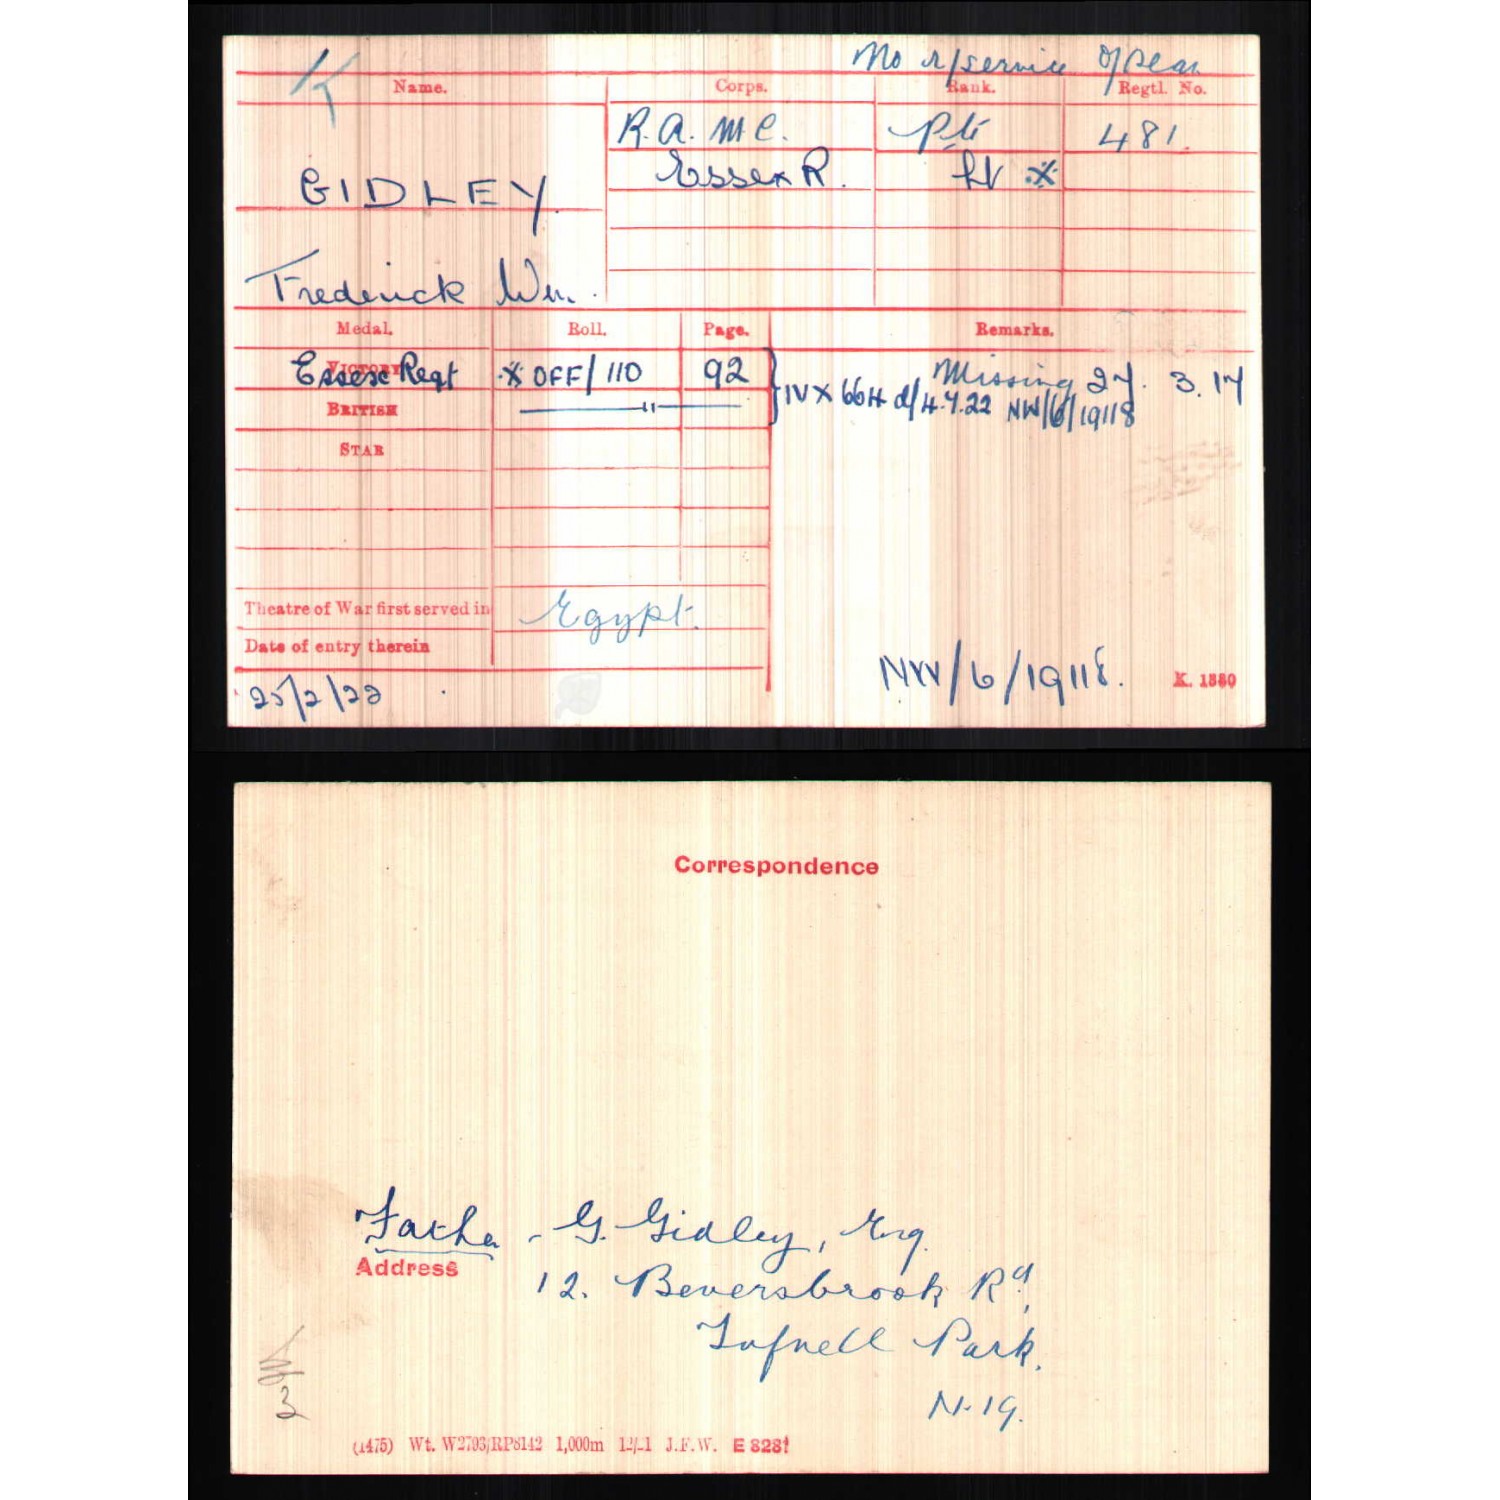 K
No r/service o/seas
Name. Corps. Rank. Regtl. No.
R.A.M.C. Pte 481.
GIDLEY Essex R. Lt ※
Frederick Wm.
Medal. Roll. Page. Remarks.
VICTORY Essex Regt ※ OFF/110 92 } Missing 27.3.17
BRITISH —— " —— IV X 66H d/4.7.22 NW/6/19118
STAR
Theatre of War first served in Egypt.
Date of entry therein
25/2/22 NW/6/19118. K. 1380
Correspondence
Father - G. Gidley, Esq.
Address 12. Beversbrook Rd,
Tufnell Park.
N.19.
3
(1475) Wt. W2703/RP8142 1,000m J.F.W. E 828